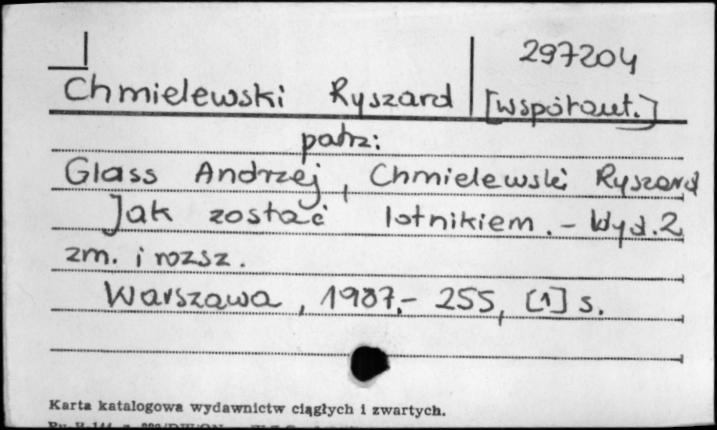 297204
Chmielewski Ryszard [współaut.]
patrz:
Glass Andrzej, Chmielewski Ryszard
Jak zostać lotnikiem. - Wyd. 2
zm. i rozsz.
Warszawa, 1987. - 255, [1] s.
Karta katalogowa wydawnictw ciągłych i zwartych.